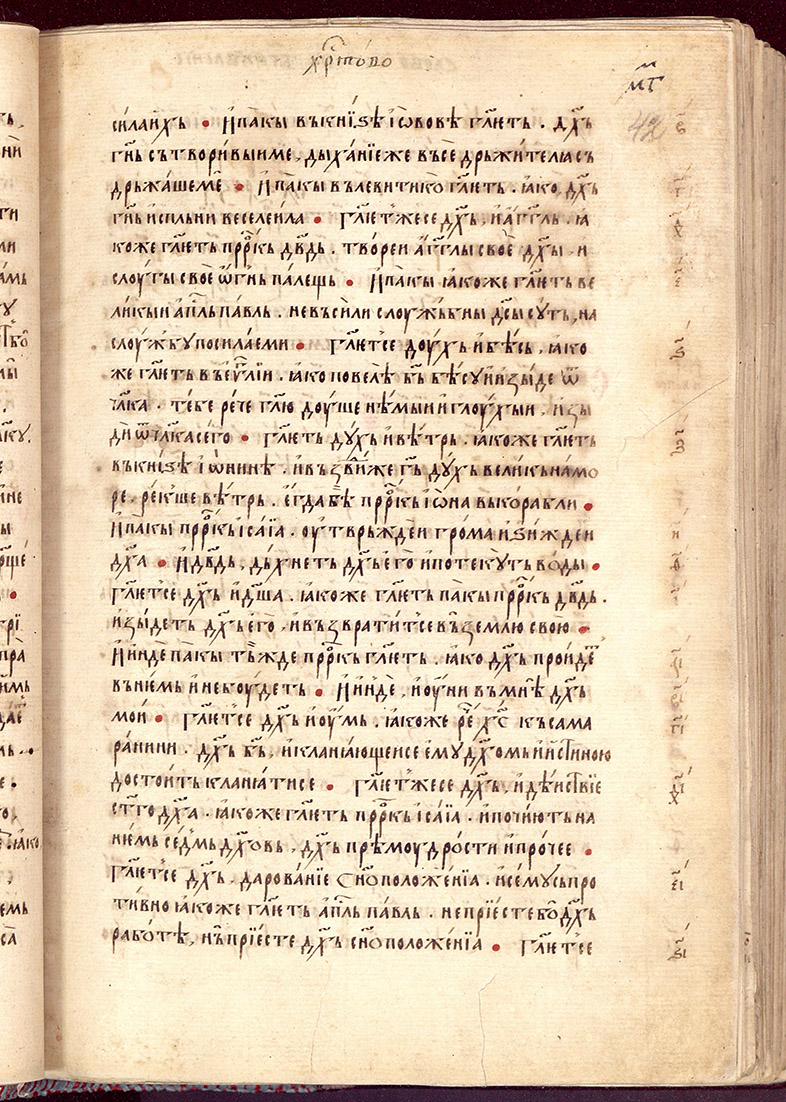 хрⷭ҇тово
мг҃
42
силаихъ • И҆ пакы въ кни́ѕѣ і҆ѡвовѣ гл҃ѥть . дх҃ъ
гн҃ь сътворивыи ме , дыха́нїе же въсе дрьжителꙗ съ
дрьжаше ме • И҆ па́кы въ левитико гл҃ѥть . ꙗко дх҃ъ
гн҃ь исплъни веселеила • гл҃ѥт же се дх҃ъ , и а҆гг҃ль . ꙗ
коже гл҃ѥть прⷪ҇ркъ дв҃дь . твореи а҆гг҃лы своѥ дх҃ы и
слоугы своѥ ѡ҆гнь палещь • И҆ пакы ꙗкоже гл҃ѥть ве
ликыи ап҃ль па́вль . не въсили слоужбьны дс҃ы сꙋть , на
слоужбꙋ посилаеми • гл҃ѥт се доухъ и бѣсь , ꙗко
же гл҃ѥть въ еѵ҃лїи . ꙗко повелѣ бъ҃ бѣсꙋ и и҆зыде ѿ
чл҃ка . тебе рече гл҃ю доуше нѣмыи и глоухыи , и҆зы
ди ѿ чл҃ка сего • гл҃ѥть дꙋхъ и вѣтрь . ꙗкоже гл҃ѥть
въ книѕѣ і҆ѡнинѣ . и въздвиже гь҃ дꙋхь великь на мо
ре . рекше вѣтрь . ѥгда бѣ прⷪ҇ркъ і҆ѡна вь корабли •
И҆ пакы прⷪ҇ркъ ісаїа . оутврьждеи грома и ѕиждеи
дх҃а • И҆ дв҃дь , дъхнеть дх҃ь ѥго и потекꙋть воды •
гл҃ѥт се дх҃ь и дш҃а . ꙗкоже гл҃ѥть пакы прⷪ҇ркъ дв҃дь .
и҆зыдеть дх҃ь ѥго , и възвратит се въ землю свою •
И҆ инде пакы тьжде прⷪ҇ркъ гл҃ѥть . ꙗко дх҃ь проидеⷮ
въ нѥмь и не боудеть • И҆ инде , и оуни въ мнѣ дх҃ь
мои • гл҃ѥт се дх҃ь и оумь . ꙗкоже реⷱ҇ хс҃ къ сама
ранини . дх҃ь бъ҃ , и кланꙗющеи се ѥмꙋ дх҃омь и истиною
достоить кланꙗти се • гл҃ѥт же се дх҃ь , и дѣиствїе
ст҃го дх҃а . ꙗкоже гл҃ѥть прⷪ҇ркъ ісаїа . и почиють на
нѥмь седмь дх҃овь , дх҃ь прѣмоудрости и прочее •
гл҃ѥт се дх҃ь . дарованїе сн҃оположенїа . и семꙋ съпро
тивно ꙗкоже гл҃ѥть ап҃ль павль . не прїесте бо дх҃ь
работѣ , нъ прїесте дх҃ь сн҃оположенїа • гл҃ѥт се